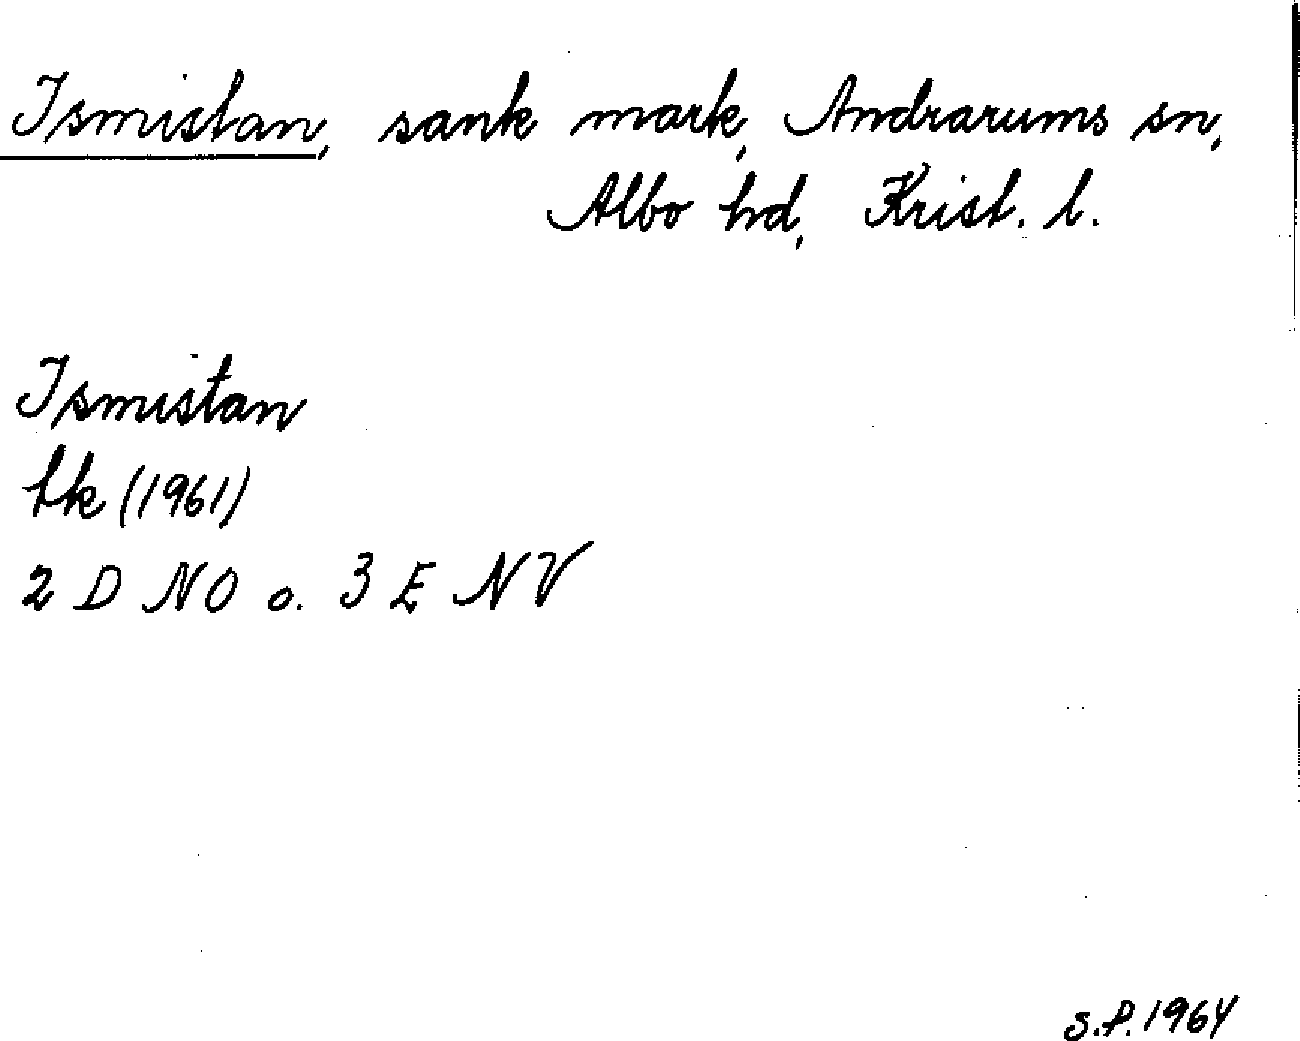 Ismistan, sank mark, Andrarums sn,
Albo hd, Krist. l.
Ismistan
hk (1961)
2 D NO o. 3 E NV
S.P. 1964